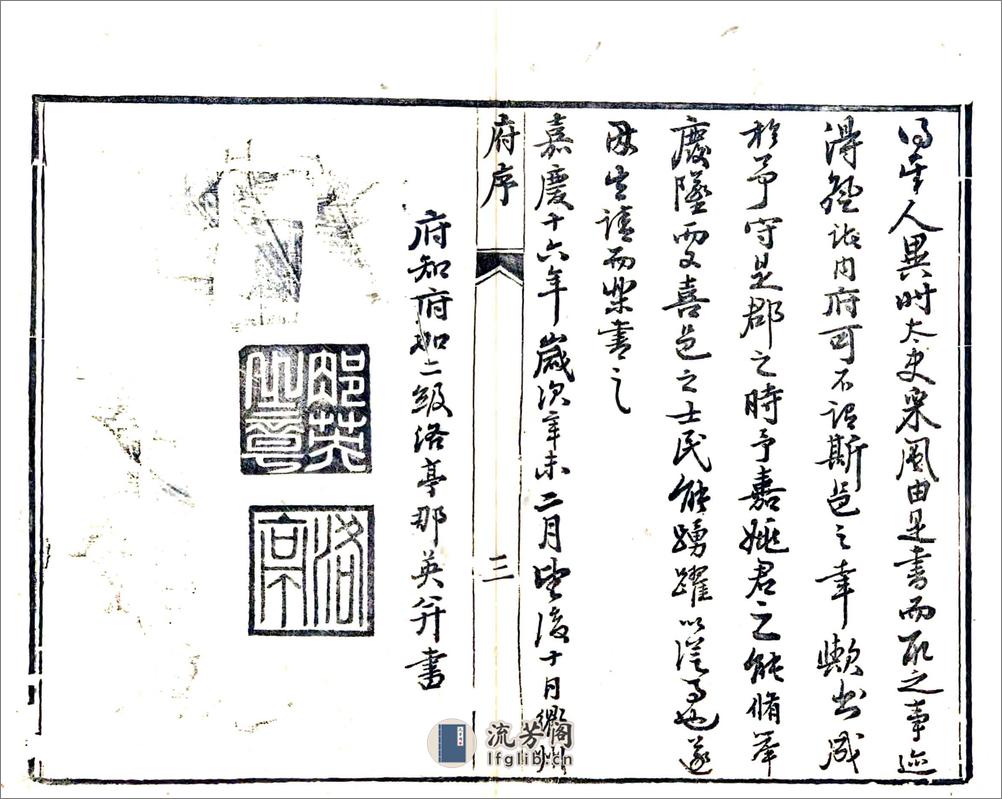 人異時太史采風由是書而取之事迹
得登諸內府可不謂斯邑之幸歟書成
於予守是郡之時予嘉姚君之能脩舉
廢墜而又喜邑之士民能踴躍以從事也遂
請而樂書之
嘉慶十六年歲次辛未二月望後十日州
府序
三
府知府加二級洛亭那英并書
那英之章
洛亭
流芳阁
lfglib.cn